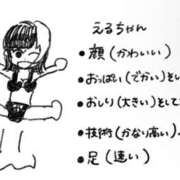 えるちゃん
・顔(かわいい)
・おっぱい(でかい)とし
・おしり(大きい)として
・技術(かなり高い)。
・足(速い)